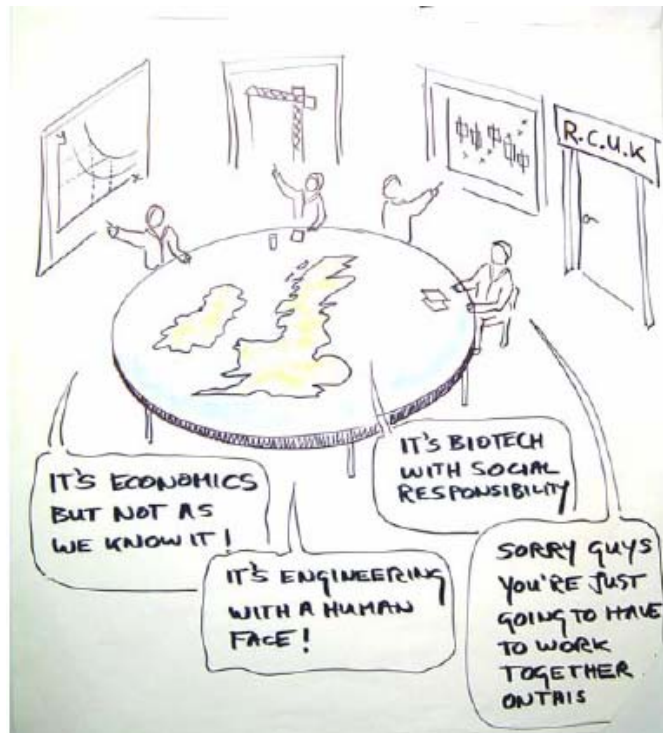 y
x
R.C.U.K
IT'S ECONOMICS
BUT NOT AS
WE KNOW IT!
IT'S ENGINEERING
WITH A HUMAN
FACE!
IT'S BIOTECH
WITH SOCIAL
RESPONSIBILITY
SORRY GUYS
YOU'RE JUST
GOING TO HAVE
TO WORK
TOGETHER
ON THIS